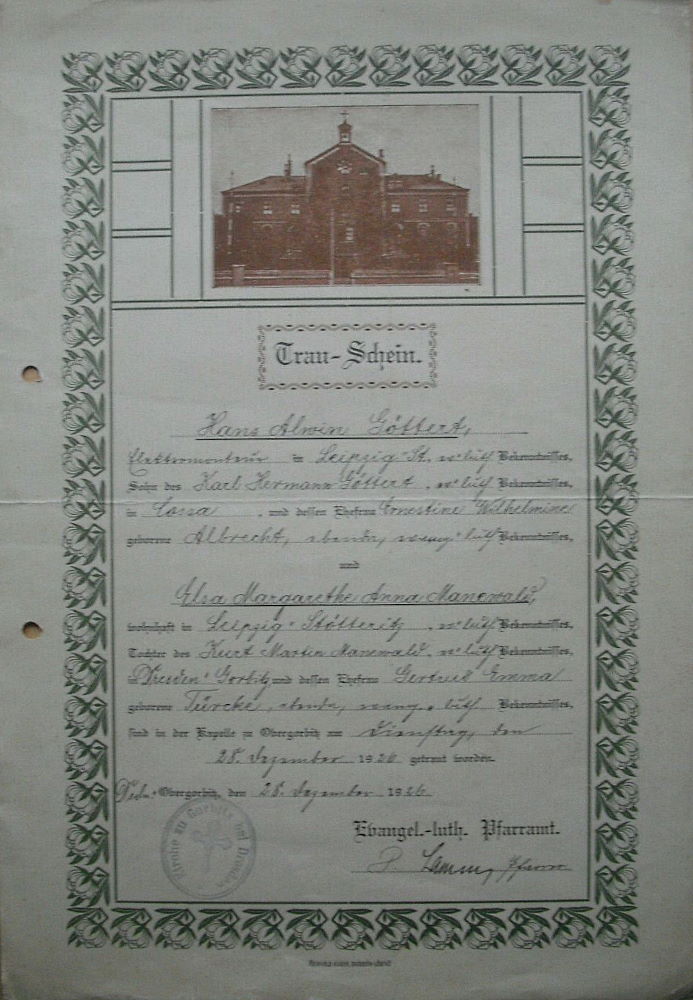 Trau-Schein.
Hans Alwin Göttert,
Elektromonteur in Leipzig-St. ev. luth. Bekenntnisses,
Sohn des Karl Hermann Göttert, ev. luth. Bekenntnisses,
in Cossa, und dessen Ehefrau Ernestine Wilhelmine
geborene Albrecht, ebenda, evang. luth. Bekenntnisses,
und
Elsa Margarethe Anna Manewald,
wohnhaft in Leipzig-Stötteritz, ev. luth. Bekenntnisses,
Tochter des Kurt Martin Manewald, ev. luth. Bekenntnisses,
in Dresden-Gorbitz und dessen Ehefrau Gertrud Emma
geborene Türcke, ebenda, evang. luth. Bekenntnisses,
sind in der Kapelle zu Obergorbitz am Dienstag, den
28. Dezember 1926 getraut worden.
Obergorbitz, den 28. Dezember 1926
Evangel.-luth. Pfarramt.
P. Pfarrer
Kirche zu Gorbitz bei Dresden